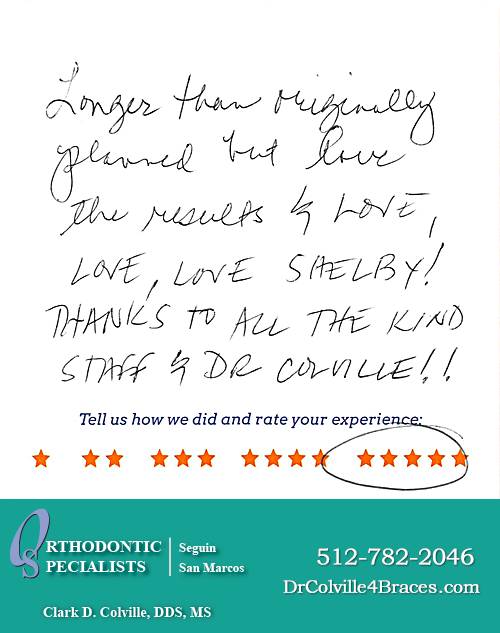 Longer than originally
planned but love
the results & LOVE,
LOVE, LOVE SHELBY!
THANKS TO ALL THE KIND
STAFF & DR COLVILLE!!
Tell us how we did and rate your experience:
ORTHODONTIC
SPECIALISTS
Seguin
San Marcos
512-782-2046
DrColville4Braces.com
Clark D. Colville, DDS, MS